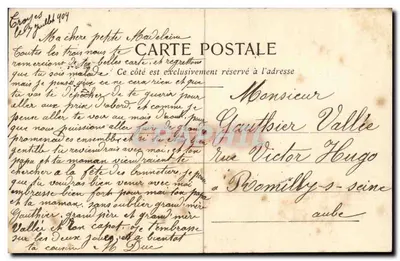 Troyes
le 9 juillet 1904
Ma chère petite Madeleine
Toutes les trois nous te
remercions de ta belle carte et regrettons
que tu sois malade
mais je pense que ce ne sera rien et que
tu vas te dépêcher de te guérir pour
aller aux prix d'abord et comme je
pense aller te voir au mois d'août, pour
que nous puissions aller
promenade ensemble et si tu
gentille tu reviendrais avec moi et ton
papa et ta maman viendraient te
chercher à la fête des bonnetiers, je pense
que tu voudras bien venir avec moi
embrasse bien fort pour moi ton papa
et ta maman, sans oublier grand mère
Gauthier, grand père et grand mère
Vallée et ton capet. Je t'embrasse
sur les deux joues, et à bientôt
ta cousine M Duc
CARTE POSTALE
Ce côté est exclusivement réservé à l'adresse
Monsieur
Gauthier Vallée
Rue Victor Hugo
à Romilly-s-seine
aube